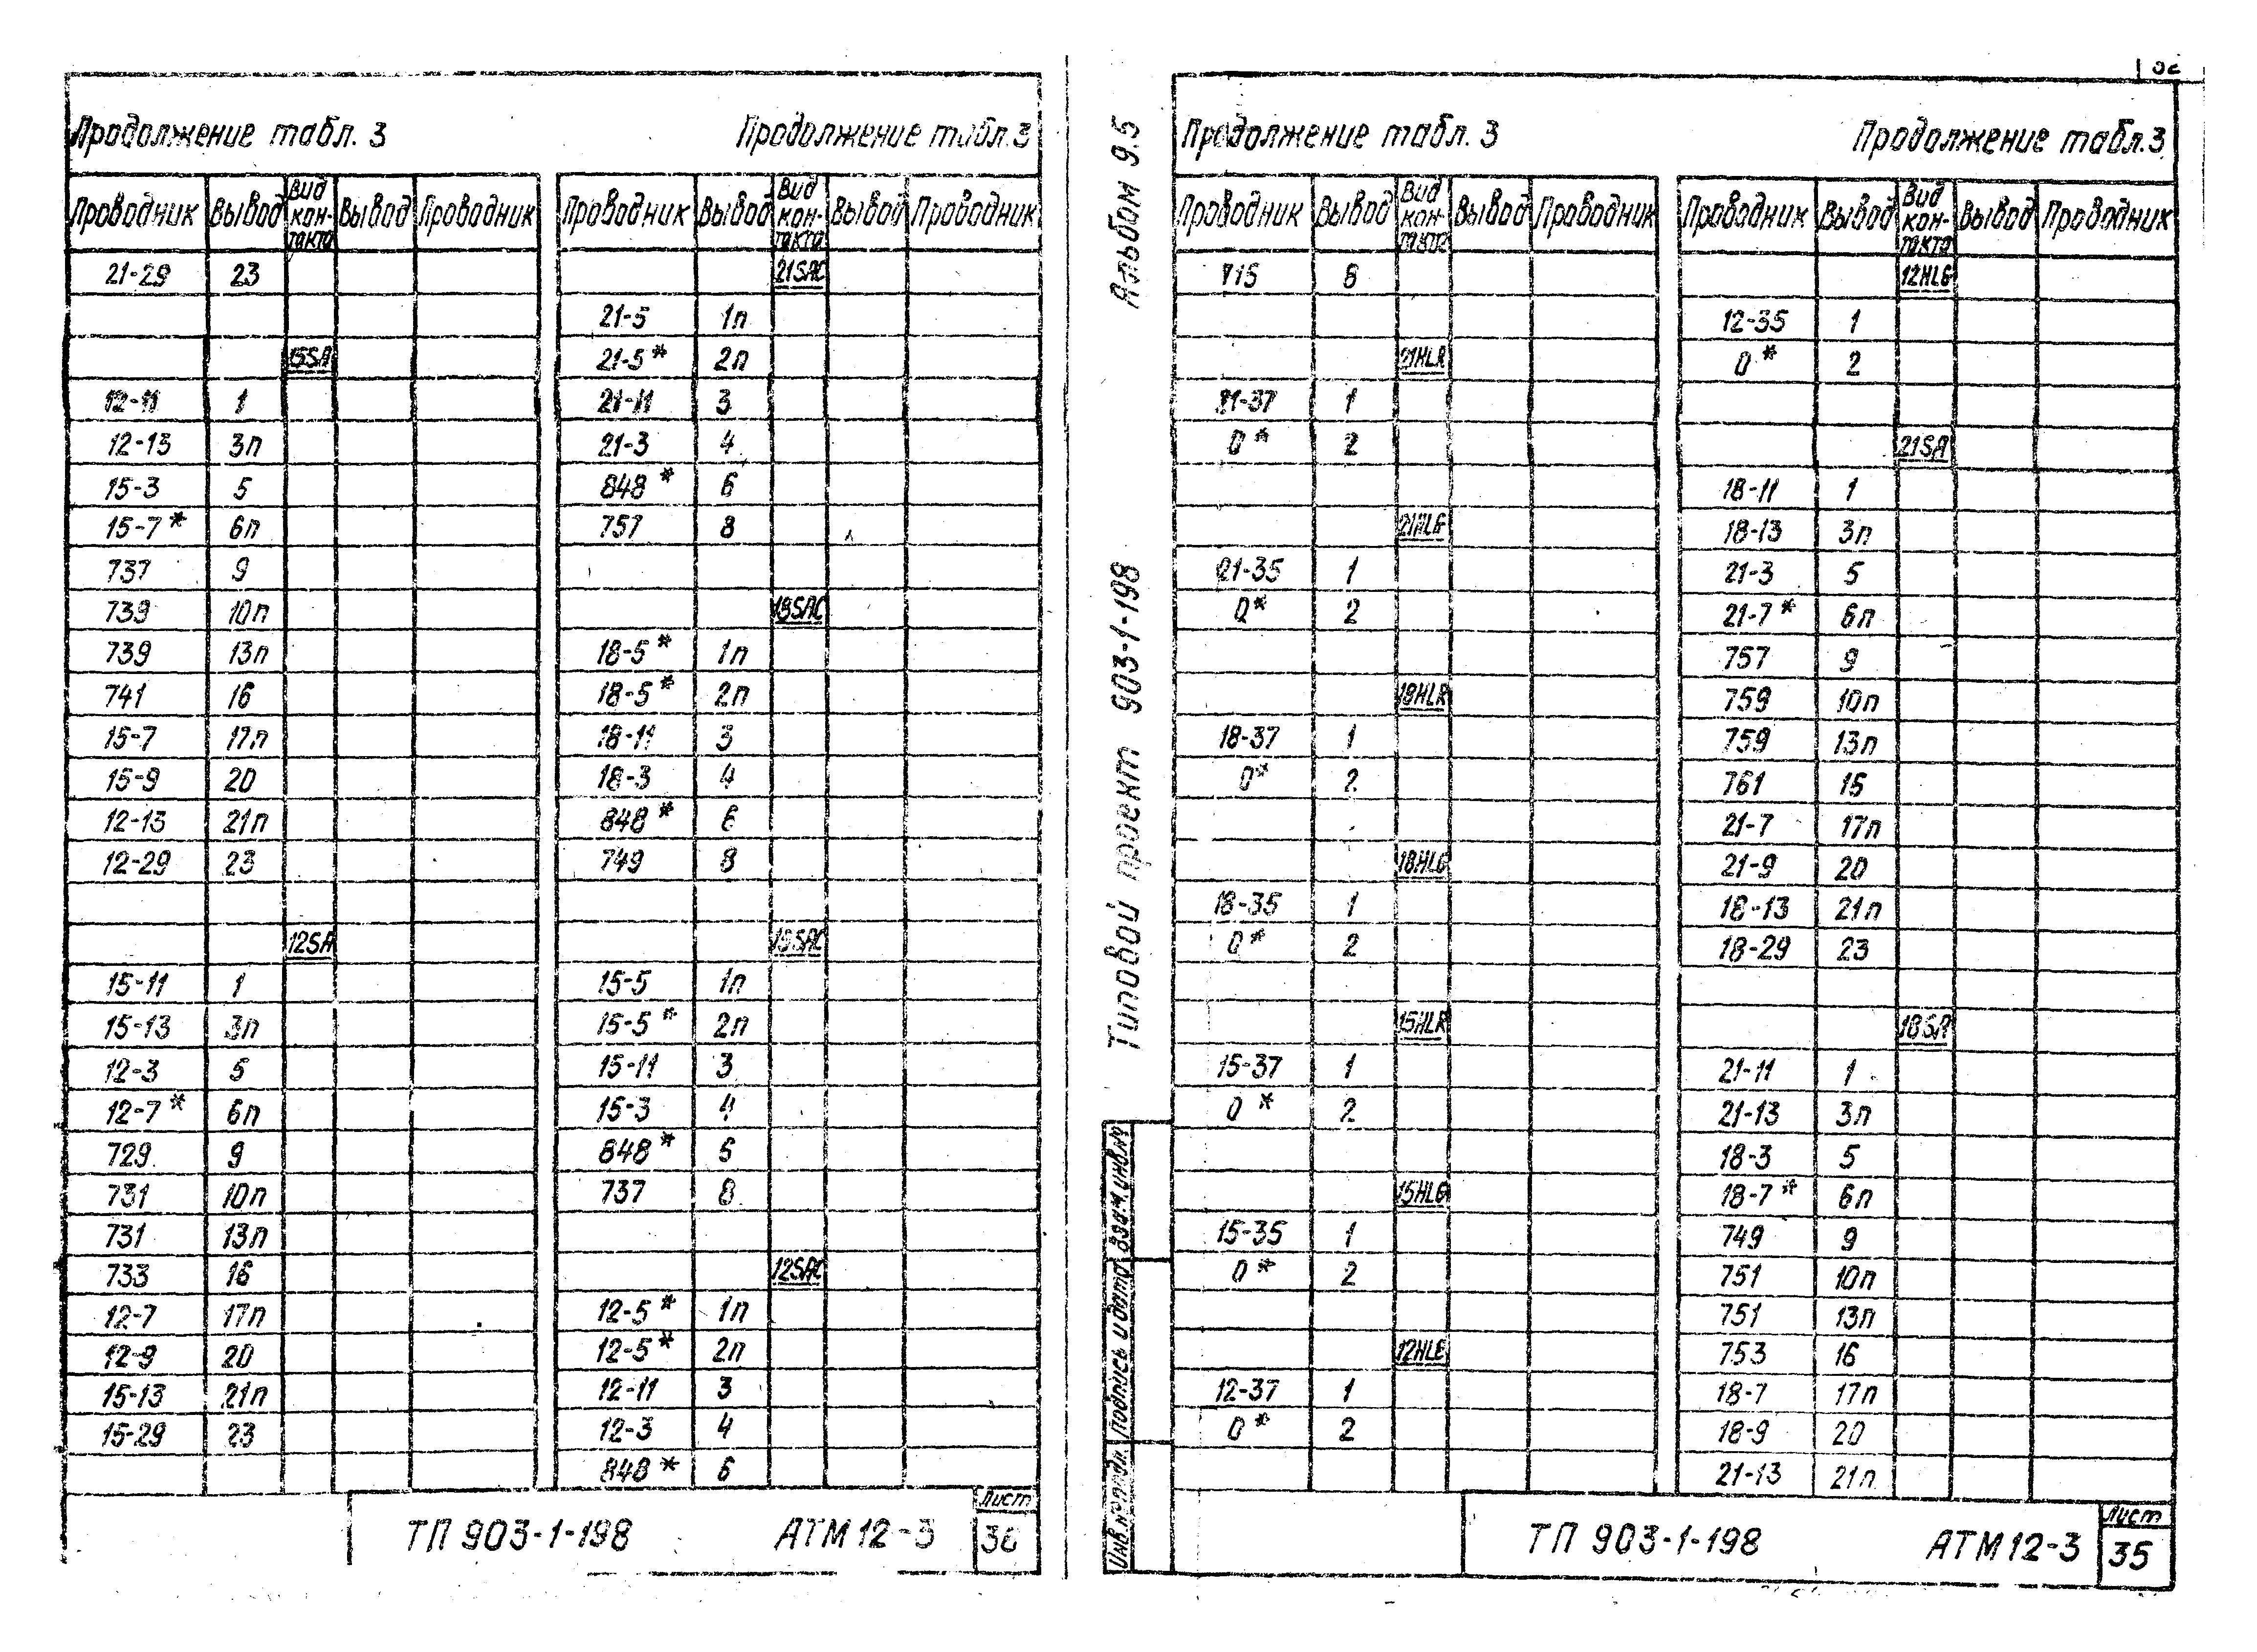 Продолжение табл. 3
Продолжение табл. 3
Проводник Вывод Вид кон-такта Вывод Проводник
21-29 23
15SA
12-11 1
12-13 3п
15-3 5
15-7* 6п
737 9
739 10п
739 13п
741 16
15-7 17п
15-9 20
12-13 21п
12-29 23
12SA
15-11 1
15-13 3п
12-3 5
12-7* 6п
729 9
731 10п
731 13п
733 16
12-7 17п
12-9 20
15-13 21п
15-29 23
Проводник Вывод Вид кон-такта Вывод Проводник
21SAC
21-5 1п
21-5* 2п
21-11 3
21-3 4
848* 6
757 8
18SAC
18-5* 1п
18-5* 2п
18-11 3
18-3 4
848* 6
749 8
15SAC
15-5 1п
15-5* 2п
15-11 3
15-3 4
848* 6
737 8
12SAC
12-5* 1п
12-5* 2п
12-11 3
12-3 4
848* 6
ТП 903-1-198 АТМ12-3
Лист
36
Альбом 9.5
Типовой проект 903-1-198
Взам.инв.№
Подпись и дата
Инв.№ подл.
Продолжение табл. 3
Продолжение табл. 3
Проводник Вывод Вид кон-такта Вывод Проводник
715 6
21HLR
21-37 1
0* 2
21HLG
21-35 1
0* 2
18HLR
18-37 1
0* 2
18HLG
18-35 1
0* 2
15HLR
15-37 1
0* 2
15HLG
15-35 1
0* 2
12-37 1
0* 2
Проводник Вывод Вид кон-такта Вывод Проводник
12HLG
12-35 1
0* 2
21SA
18-11 1
18-13 3п
21-3 5
21-7* 6п
757 9
759 10п
759 13п
761 15
21-7 17п
21-9 20
18-13 21п
18-29 23
18SA
21-11 1
21-13 3п
18-3 5
18-7* 6п
749 9
751 10п
751 13п
753 16
18-7 17п
18-9 20
21-13 21п
ТП 903-1-198 АТМ12-3
Лист
35